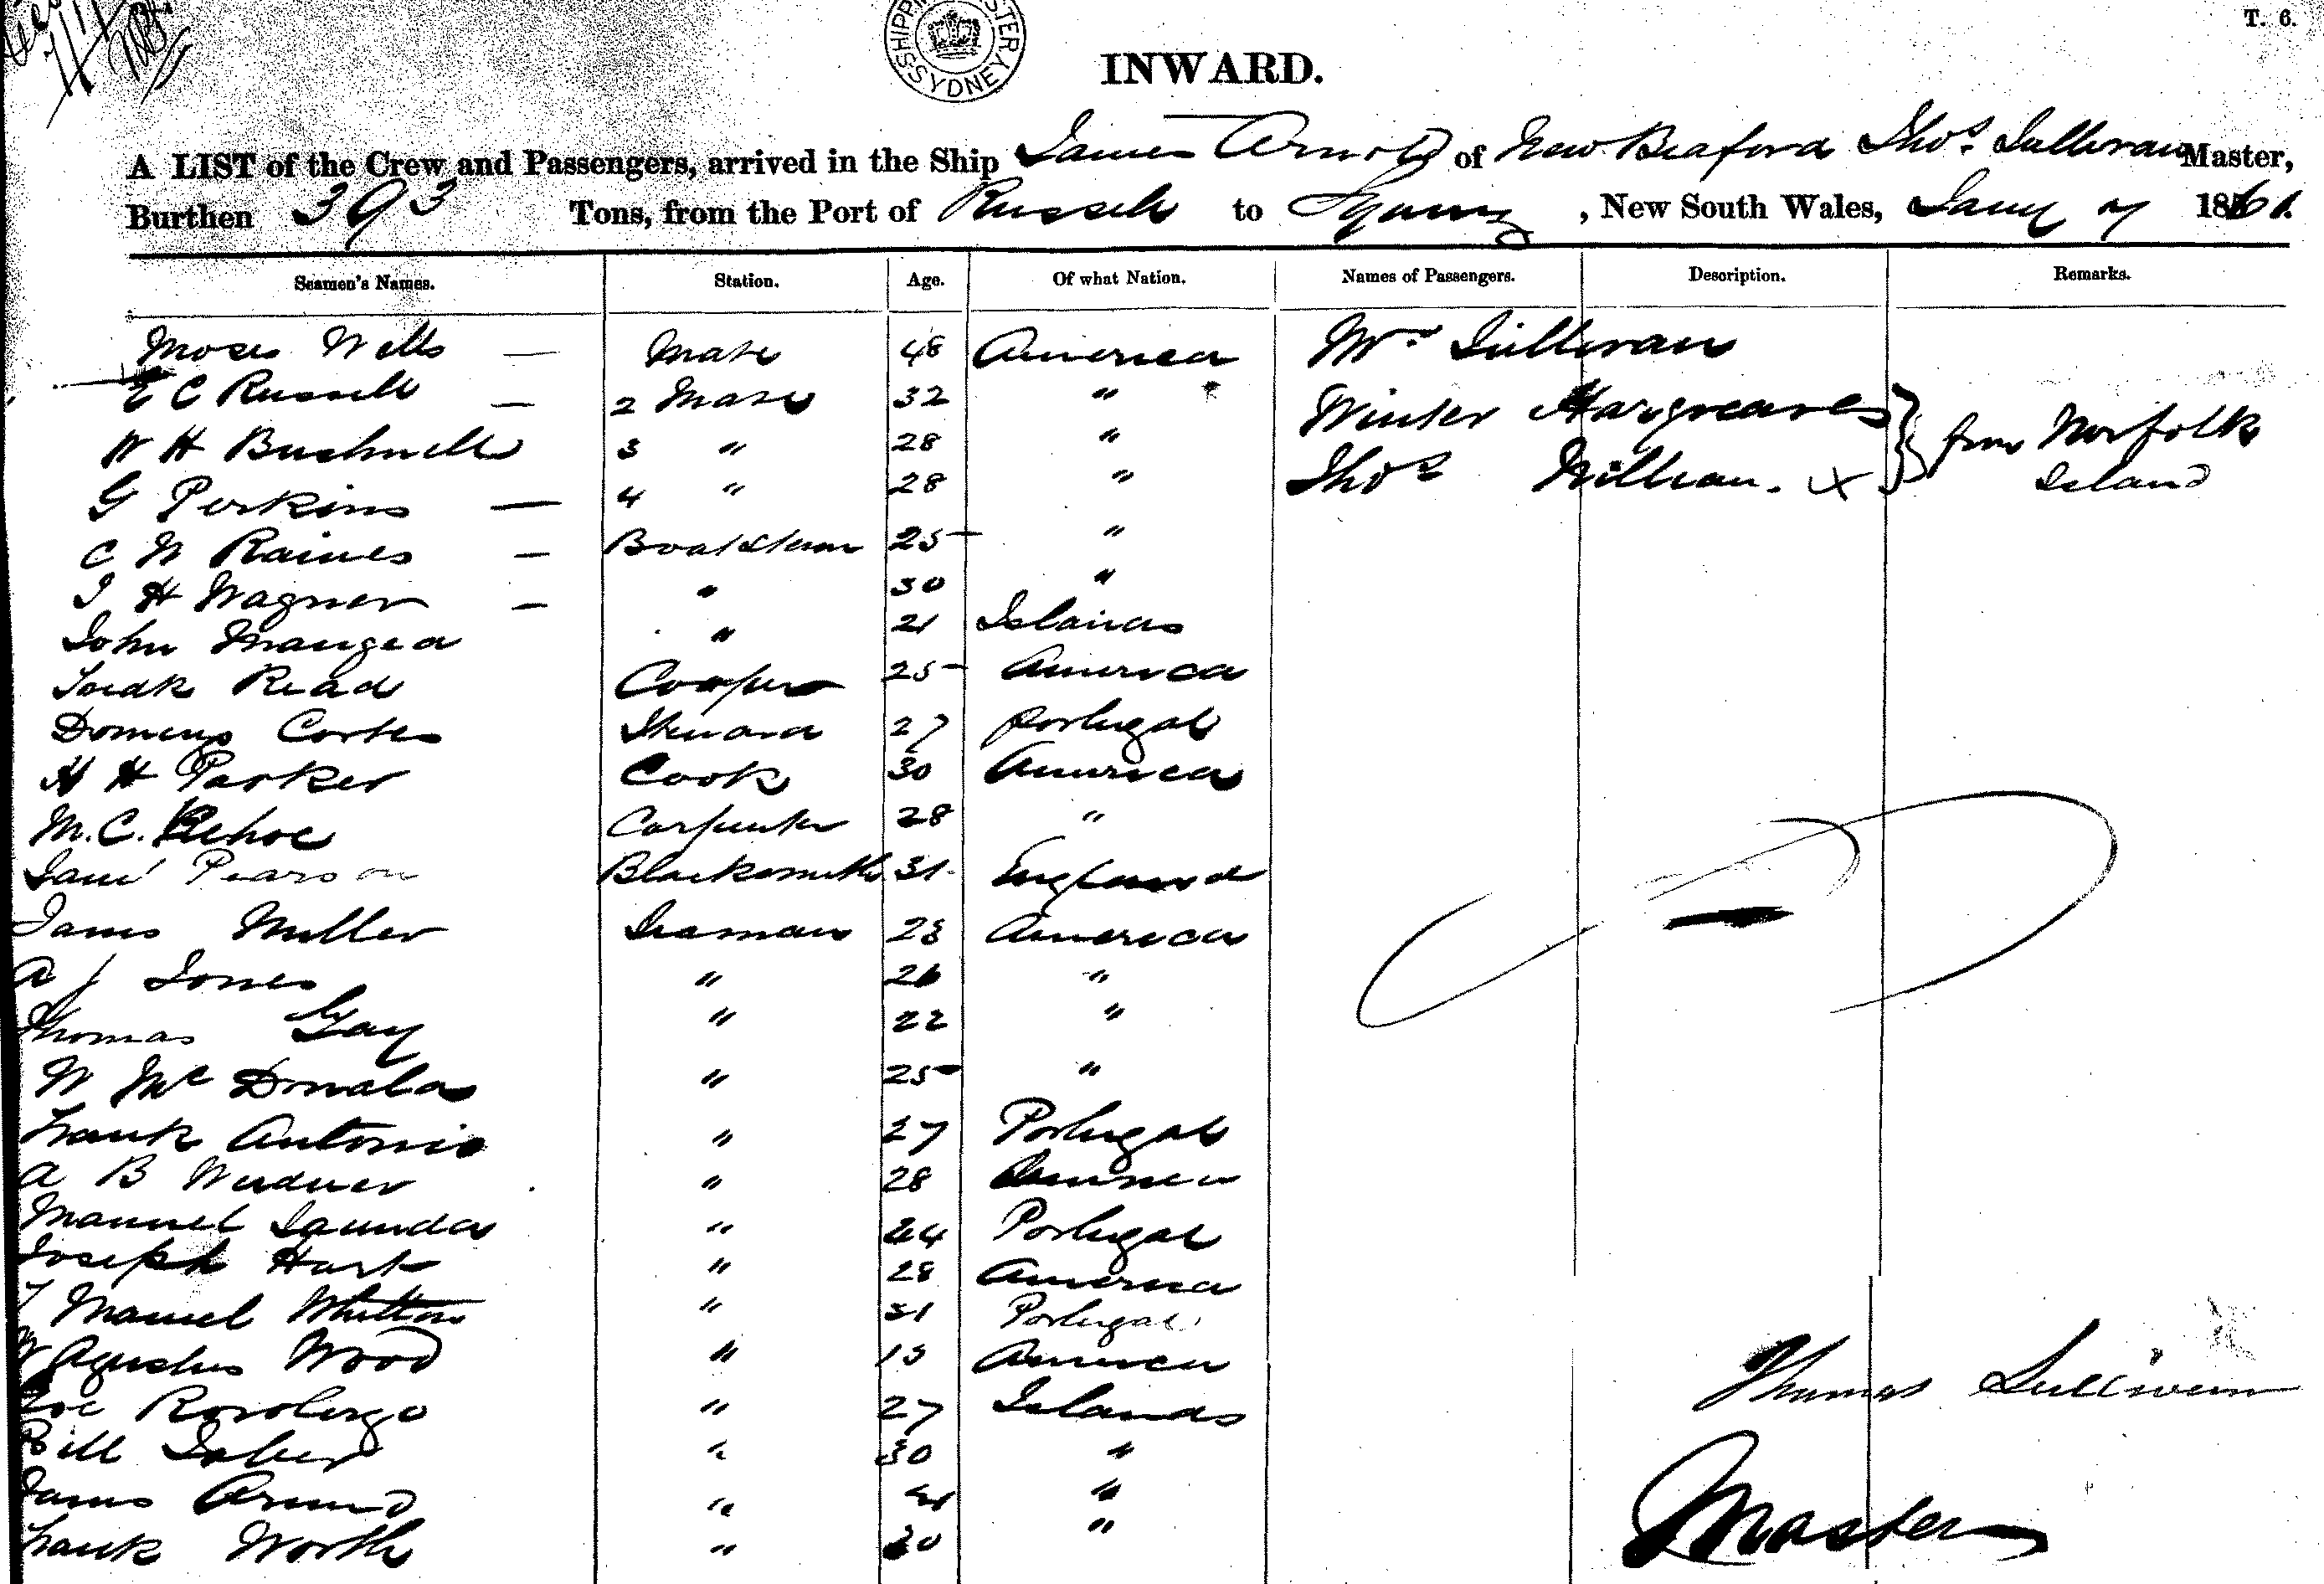 T. 6.
SHIPPING MASTER SYDNEY
INWARD.
A LIST of the Crew and Passengers, arrived in the Ship James Arnold of New Bedford Thos. Sullivan Master,
Burthen 393 Tons, from the Port of Russell to Sydney, New South Wales, Jany 7 1861.
Seamen's Names. Station. Age. Of what Nation. Names of Passengers. Description. Remarks.
Moses Wells — Mate 48 America Mrs Sullivan
E C Russell — 2 Mate 32 " Winter Hargreaves } from Norfolk
W H Bushnell 3 " 28 "
G Perkins — 4 " 28 " Thos Nillvan. x Island
C W Raines — Boatsteerer 25 "
J H Wagner — " 30 "
John Mangea " 21 Islands
Read Cooper 25 America
Cortes Steward 27 Portugal
H H Parker Cook 30 America
M. C. Kehoe Carpenter 28 "
Pearson Blacksmith 31 England
James Miller Seaman 23 America
A J Jones " 26 "
Thomas Gay " 22 "
W McDonald " 25 "
Frank Antonio " 27 Portugal
A B " 28 America
Manuel Saunders " 24 Portugal
Joseph Hart " 28 America
Manuel Whitton " 31 Portugal
Agustus Wood " 15 America
Joe " 27 Islands
Bill " 30 "
James " "
Frank Worth " 30 "
Thomas Sullivan
Master